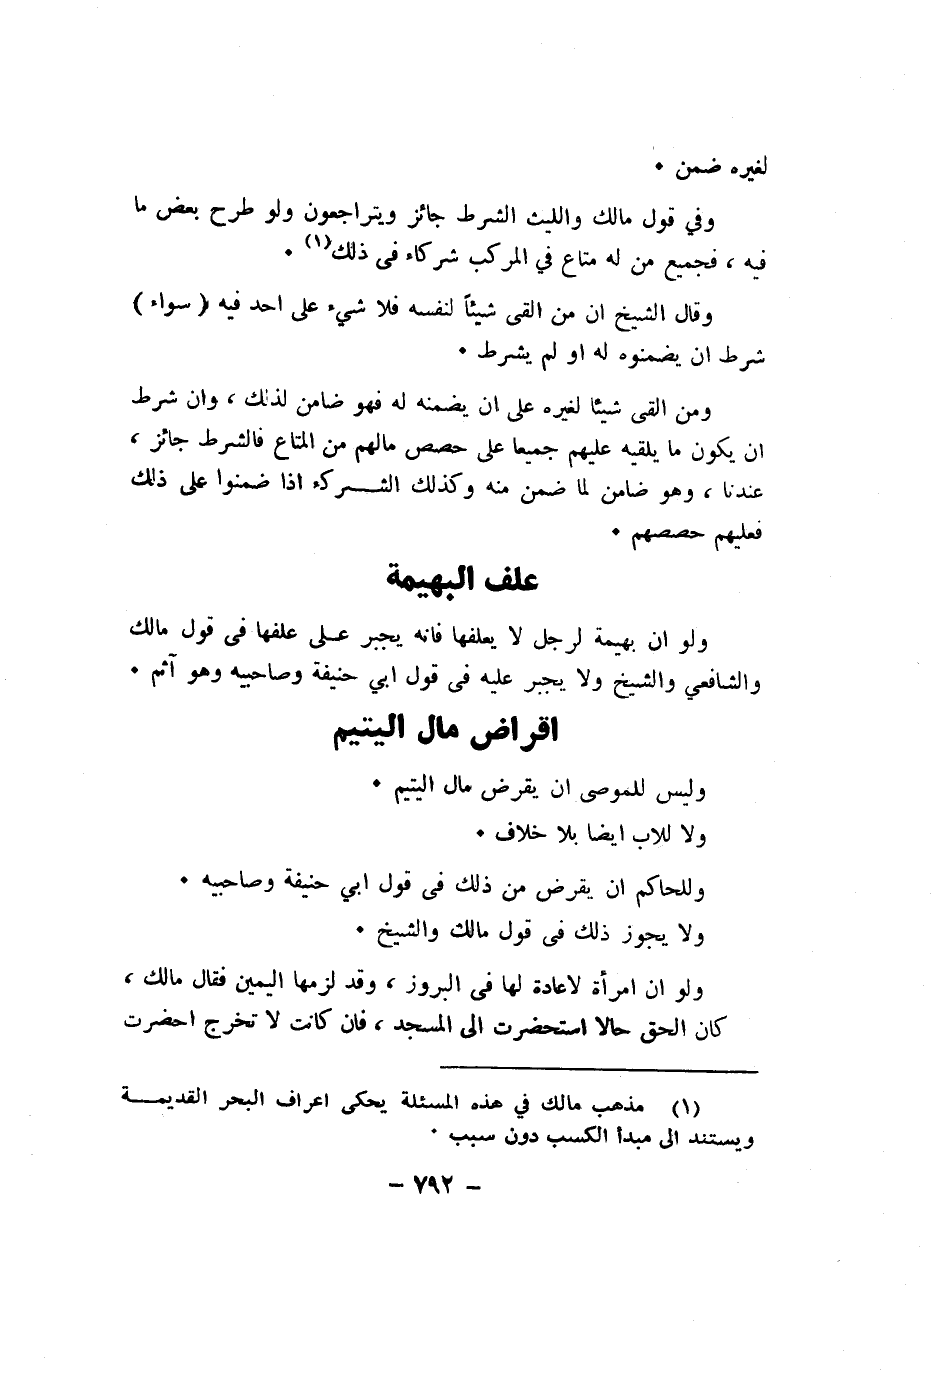 لغيره ضمن ٠
وفي قول مالك والليث الشرط جائز ويتراجعون ولو طرح بعض ما
فيه ، فجميع من له متاع في المركب شركاء فى ذلك(١) ٠
وقال الشيخ ان من القى شيئاً لنفسه فلا شيء على احد فيه ( سواء )
شرط ان يضمنوه له او لم يشرط ٠
ومن القى شيئا لغيره على ان يضمنه له فهو ضامن لذلك ، وان شرط
ان يكون ما يلقيه عليهم جميعا على حصص مالهم من المتاع فالشرط جائز ،
عندنا ، وهو ضامن لما ضمن منه وكذلك الشــركء اذا ضمنوا على ذلك
فعليهم حصصهم ٠
علف البهيمة
ولو ان بهيمة لرجل لا يعلفها فانه يجبر عــلى علفها فى قول مالك
والشافعي والشيخ ولا يجبر عليه فى قول ابي حنيفة وصاحبيه وهو آثم ٠
اقراض مال اليتيم
وليس للموصى ان يقرض مال اليتيم ٠
ولا للاب ايضا بلا خلاف ٠
وللحاكم ان يقرض من ذلك فى قول ابي حنيفة وصاحبيه ٠
ولا يجوز ذلك فى قول مالك والشيخ ٠
ولو ان امرأة لاعادة لها فى البروز ، وقد لزمها اليمين فقال مالك ،
كان الحق حالا استحضرت الى المسجد ، فان كانت لا تخرج احضرت
(١) مذهب مالك في هذه المسئلة يحكى اعراف البحر القديمــة
ويستند الى مبدأ الكسب دون سبب ٠
– ٧٩٢ –